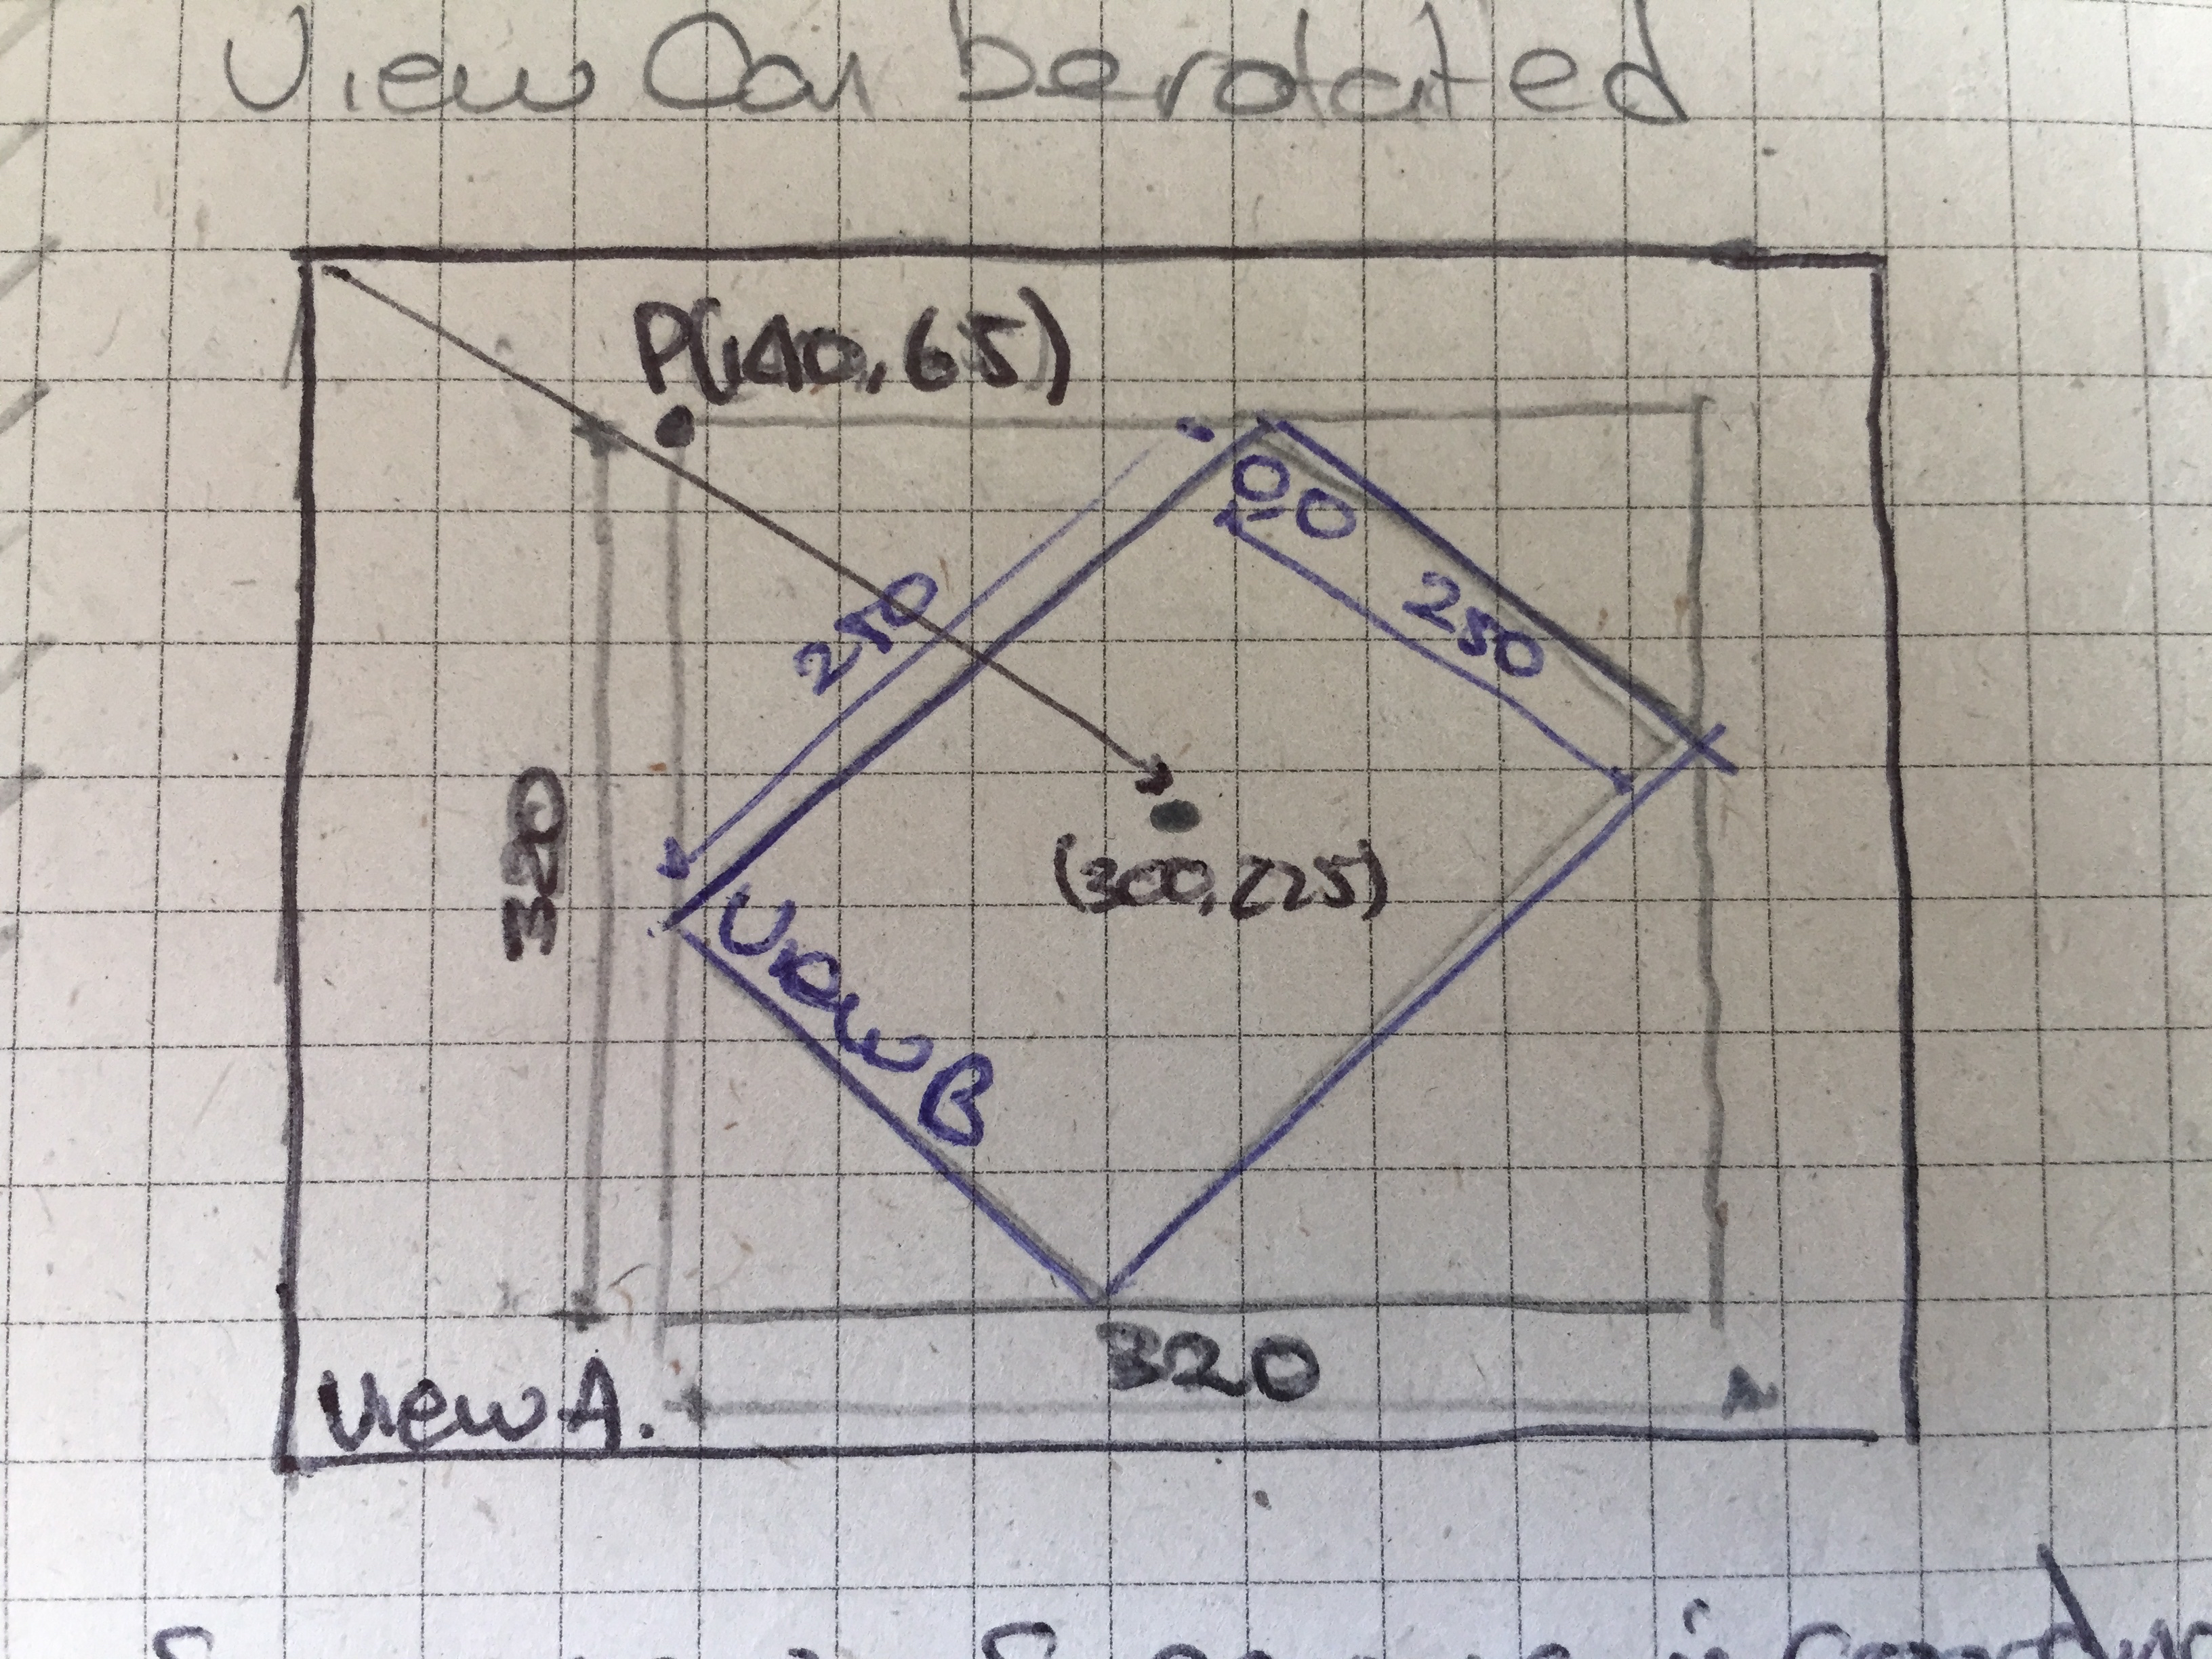 View Can be rotated
P(140,65)
0,0
250
250
320
(300,225)
View B
320
View A.